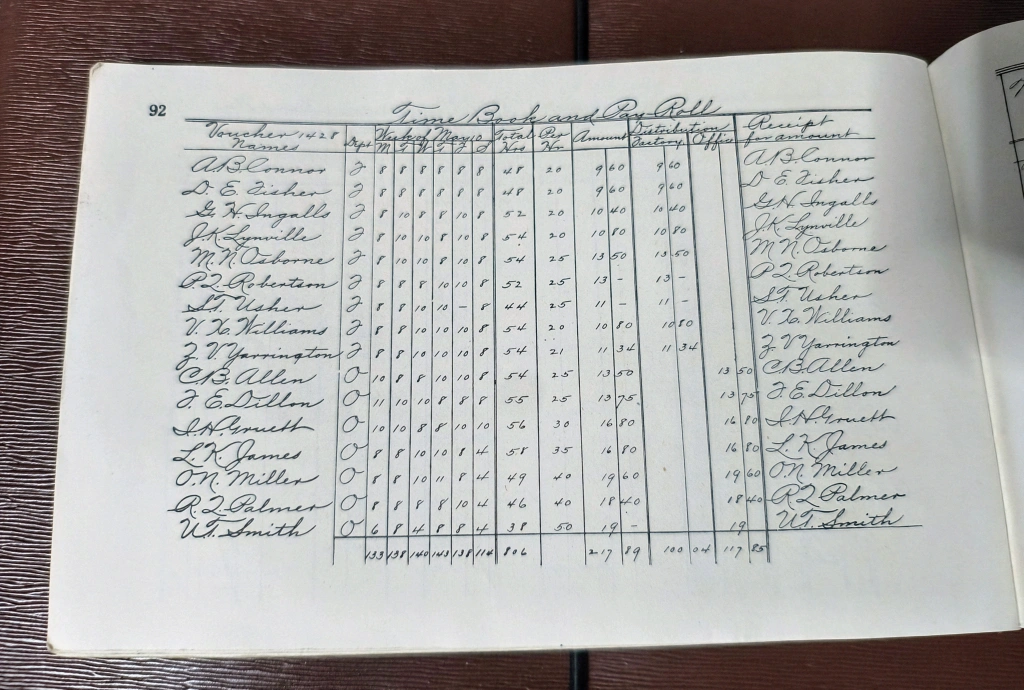 92
Time Book and Pay Roll
Voucher 1428 Names Dept Week of May 10 M T W T F S Total Hrs Per Hr Amount Distribution Factory Office Receipt for amount
A.B. Connor F 8 8 8 8 8 8 48 20 9 60 9 60 A.B. Connor
D. E. Fisher F 8 8 8 8 8 8 48 20 9 60 9 60 D. E. Fisher
G. H. Ingalls F 8 10 8 8 10 8 52 20 10 40 10 40 G. H. Ingalls
J.K. Lynville F 8 10 10 8 10 8 54 20 10 80 10 80 J.K. Lynville
M. N. Osborne F 8 10 10 8 10 8 54 25 13 50 13 50 M. N. Osborne
P. Q. Robertson F 8 8 8 10 10 8 52 25 13 - 13 - P. Q. Robertson
S.T. Usher F 8 8 10 10 - 8 44 25 11 - 11 - S.T. Usher
V. X. Williams F 8 8 10 10 10 8 54 20 10 80 10 80 V. X. Williams
Z. V. Yarrington F 8 8 10 10 10 8 54 21 11 34 11 34 Z. V. Yarrington
C.B. Allen O 10 8 8 10 10 8 54 25 13 50 13 50 C.B. Allen
F. E. Dillon O 11 10 10 8 8 8 55 25 13 75 13 75 F. E. Dillon
I. H. Gruett O 10 10 8 8 10 10 56 30 16 80 16 80 I. H. Gruett
L. K. James O 8 8 10 10 8 4 58 35 16 80 16 80 L. K. James
O. N. Miller O 8 8 10 11 8 4 49 40 19 60 19 60 O. N. Miller
R. Q. Palmer O 8 8 8 8 10 4 46 40 18 40 18 40 R. Q. Palmer
U.T. Smith O 6 8 4 8 8 4 38 50 19 - 19 U.T. Smith
133 138 140 143 138 114 806 217 89 100 04 117 85